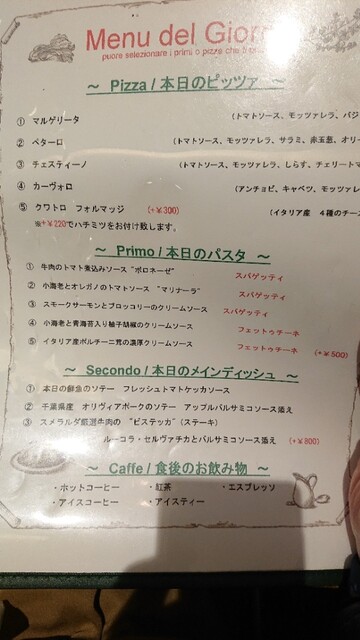 Menu del Giorn
puoi selezionare i primi o pizze che
～ Pizza / 本日のピッツァ ～
① マルゲリータ (トマトソース、モッツァレラ、バジ
② ペターロ (トマトソース、モッツァレラ、サラミ、赤玉葱、オリー
③ チェスティーノ (トマトソース、モッツァレラ、しらす、チェリートマ
④ カーヴォロ (アンチョビ、キャベツ、モッツァレ
⑤ クワトロ フォルマッジ (+￥300) (イタリア産 4種のチー
※+￥220でハチミツをお付け致します。
～ Primo / 本日のパスタ ～
① 牛肉のトマト煮込みソース "ボロネーゼ" スパゲッティ
② 小海老とオレガノのトマトソース "マリナーラ" スパゲッティ
③ スモークサーモンとブロッコリーのクリームソース スパゲッティ
④ 小海老と青海苔入り柚子胡椒のクリームソース フェットゥチーネ
⑤ イタリア産ポルチーニ茸の濃厚クリームソース フェットゥチーネ (+￥500)
～ Secondo / 本日のメインディッシュ ～
① 本日の鮮魚のソテー フレッシュトマトケッカソース
② 千葉県産 オリヴィアポークのソテー アップルバルサミコソース添え
③ スメラルダ厳選牛肉の "ビステッカ" (ステーキ)
ルーコラ・セルヴァチカとバルサミコソース添え (+￥800)
～ Caffe / 食後のお飲み物 ～
・ホットコーヒー ・紅茶 ・エスプレッソ
・アイスコーヒー ・アイスティー